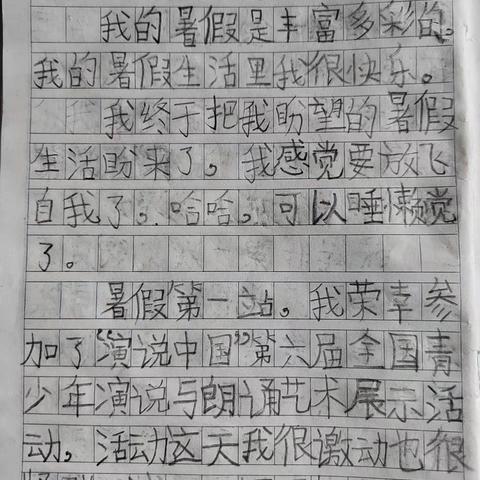 我的暑假是丰富多彩的。
我的暑假生活里我很快乐。
我终于把我盼望的暑假
生活盼来了。我感觉要放飞
自我了，哈哈，可以睡懒觉
了。
暑假第一站。我荣幸参
加了“演说中国”第六届全国青
少年演说与朗诵艺术展示活
动。活动这天我很激动也很